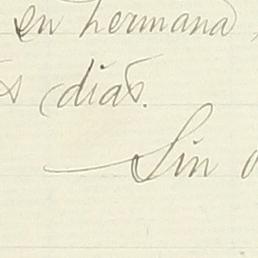 en hermana
días.
Sin